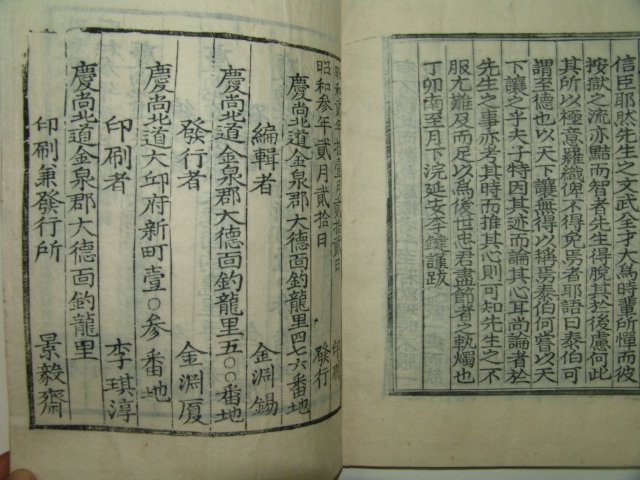 信臣耶然先生之文武全才大爲時輩所憚而彼
按獄之流亦黠而智者先生得脫其於後慮何此
其所以極意羅織俾不得免焉者耶語曰泰伯可
謂至德也以天下讓無得以稱焉泰伯何嘗以天
下讓之乎夫子特因其迹而論其心耳尚論者於
先生之事亦考其時而推其心則可知先生之不
服尤難及而足以爲後世忠君盡節者之執燭也
丁卯南至月下浣延安李鍵謹跋
昭和貳年拾壹月貳拾貳日 印刷
昭和參年貳月貳拾日 發行
慶尚北道金泉郡大德面釣龍里四七六番地
編輯者 金淵錫
慶尚北道金泉郡大德面釣龍里五〇〇番地
發行者 金淵厦
慶尚北道大邱府新町壹〇參番地
印刷者 李琪淳
慶尚北道金泉郡大德面釣龍里
印刷兼發行所 景毅齋